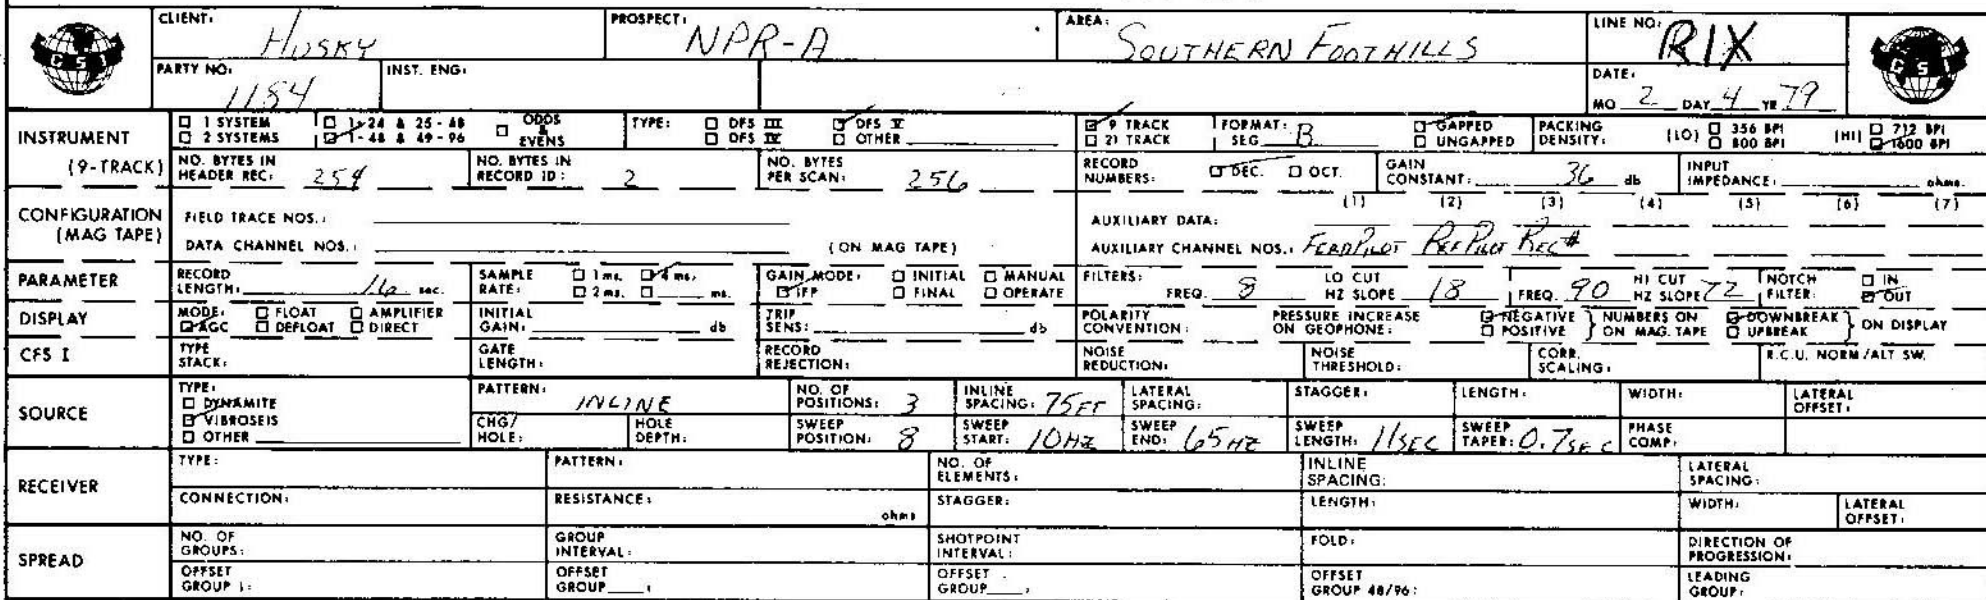 CLIENT: HUSKY PROSPECT: NPR-A AREA: SOUTHERN FOOTHILLS LINE NO: RIX
GSI
PARTY NO: 1184 INST. ENG: DATE: MO 2 DAY 4 YR 79
GSI
INSTRUMENT (9-TRACK)
☐ 1 SYSTEM ☐ 1-24 & 25-48 ☐ ODDS & EVENS TYPE: ☐ DFS III ☑ DFS V ☑ 9 TRACK FORMAT: SEG B ☑ GAPPED PACKING DENSITY: (LO) ☐ 356 BPI (HI) ☐ 712 BPI
☐ 2 SYSTEMS ☑ 1-48 & 49-96 ☐ DFS IV ☐ OTHER ☐ 21 TRACK ☐ UNGAPPED ☐ 800 BPI ☑ 1600 BPI
NO. BYTES IN HEADER REC: 254 NO. BYTES IN RECORD ID: 2 NO. BYTES PER SCAN: 256 RECORD NUMBERS: ☑ DEC. ☐ OCT. GAIN CONSTANT: 36 db INPUT IMPEDANCE: ohms.
CONFIGURATION (MAG TAPE)
FIELD TRACE NOS.: AUXILIARY DATA: (1) (2) (3) (4) (5) (6) (7)
DATA CHANNEL NOS.: (ON MAG TAPE) AUXILIARY CHANNEL NOS.: PILOT REF PILOT REC#
PARAMETER RECORD LENGTH: 16 sec. SAMPLE RATE: ☐ 1 ms. ☑ 4 ms. ☐ 2 ms. ☐ ms. GAIN MODE: ☐ INITIAL ☐ MANUAL ☑ IFP ☐ FINAL ☐ OPERATE FILTERS: FREQ. 8 LO CUT HZ SLOPE 18 FREQ. 90 HI CUT HZ SLOPE 72 NOTCH FILTER: ☐ IN ☑ OUT
DISPLAY MODE: ☐ FLOAT ☐ AMPLIFIER ☑ AGC ☐ DEFLOAT ☐ DIRECT INITIAL GAIN: db TRIP SENS: db POLARITY CONVENTION: PRESSURE INCREASE ON GEOPHONE: ☑ NEGATIVE ☐ POSITIVE } NUMBERS ON MAG. TAPE ☑ DOWNBREAK ☐ UPBREAK } ON DISPLAY
CFS I TYPE STACK: GATE LENGTH: RECORD REJECTION: NOISE REDUCTION: NOISE THRESHOLD: CORR. SCALING: R.C.U. NORM/ALT SW.
SOURCE TYPE: ☐ DYNAMITE ☑ VIBROSEIS ☐ OTHER
PATTERN: INLINE NO. OF POSITIONS: 3 INLINE SPACING: 75FT LATERAL SPACING: STAGGER: LENGTH: WIDTH: LATERAL OFFSET:
CHG/HOLE: HOLE DEPTH: SWEEP POSITION: 8 SWEEP START: 10HZ SWEEP END: 65HZ SWEEP LENGTH: 11SEC SWEEP TAPER: 0.7SEC PHASE COMP:
RECEIVER TYPE: PATTERN: NO. OF ELEMENTS: INLINE SPACING: LATERAL SPACING:
CONNECTION: RESISTANCE: ohms STAGGER: LENGTH: WIDTH: LATERAL OFFSET:
SPREAD NO. OF GROUPS: GROUP INTERVAL: SHOTPOINT INTERVAL: FOLD: DIRECTION OF PROGRESSION:
OFFSET GROUP 1: OFFSET GROUP : OFFSET GROUP : OFFSET GROUP 48/96: LEADING GROUP: